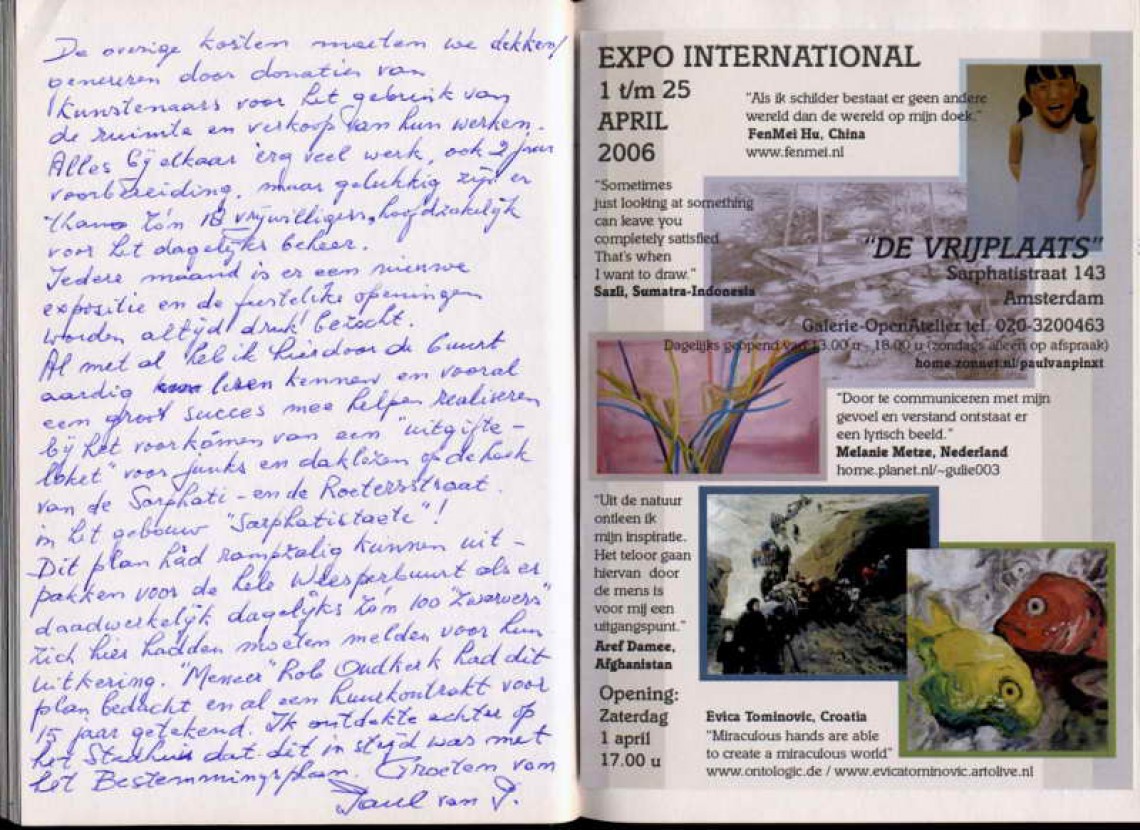 De overige kosten moeten we dekken/
genereren door donaties van
Kunstenaars voor het gebruik van
de ruimte en verkoop van hun werken.
Alles bij elkaar erg veel werk, ook 2 jaar
voorbereiding, maar gelukkig zijn er
thans zo'n 18 vrijwilligers, hoofdzakelijk
voor het dagelijks beheer.
Iedere maand is er een nieuwe
expositie en de feestelijke openingen
worden altijd druk bezocht.
Al met al heb ik hierdoor de buurt
aardig leren kennen en vooral
een groot succes mee helpen realiseren
bij het voorkómen van een "uitgifte-
loket" voor junks en daklozen op de hoek
van de Sarphati- en de Roetersstraat.
in het gebouw "Sarphatistaete"!
Dit plan had rampzalig kunnen uit-
pakken voor de hele Weesperbuurt als er
daadwerkelijk dagelijks zo'n 100 "zwervers"
zich hier hadden moeten melden voor hun
uitkering. "Meneer" Rob Oudkerk had dit
plan bedacht en al een huurkontrakt voor
15 jaar getekend. Ik ontdekte achter op
het Stadhuis dat dit in strijd was met
het Bestemmingsplan. Groeten van
Paul van P.
EXPO INTERNATIONAL
1 t/m 25
APRIL
2006
"Als ik schilder bestaat er geen andere
wereld dan de wereld op mijn doek."
FenMei Hu, China
www.fenmei.nl
"Sometimes
just looking at something
can leave you
completely satisfied
That's when
I want to draw."
Sazli, Sumatra-Indonesia
"DE VRIJPLAATS"
Sarphatistraat 143
Amsterdam
Galerie-OpenAtelier tel. 020-3200463
Dagelijks geopend van 13.00 u - 18.00 u (zondags alleen op afspraak)
home.zonnet.nl/paulvanpinxt
"Door te communiceren met mijn
gevoel en verstand ontstaat er
een lyrisch beeld."
Melanie Metze, Nederland
home.planet.nl/~gulie003
"Uit de natuur
ontleen ik
mijn inspiratie.
Het teloor gaan
hiervan door
de mens is
voor mij een
uitgangspunt."
Aref Damee,
Afghanistan
Opening:
Zaterdag
1 april
17.00 u
Evica Tominovic, Croatia
"Miraculous hands are able
to create a miraculous world"
www.ontologic.de / www.evicatominovic.artolive.nl